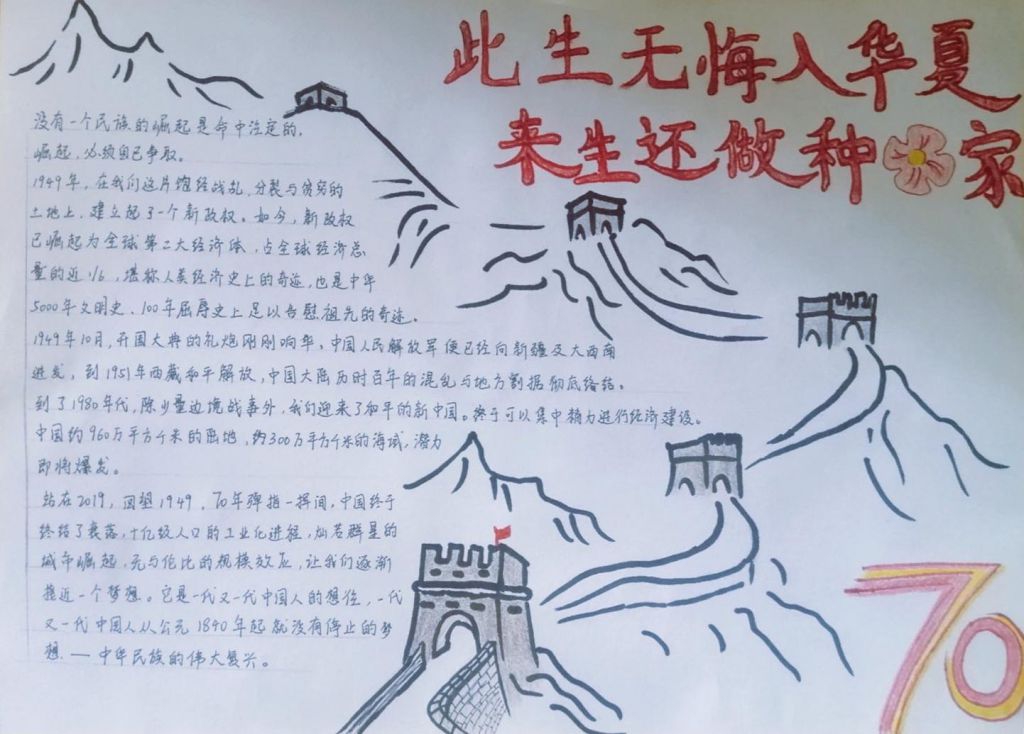 此生无悔入华夏
来生还做种家
没有一个民族的崛起是命中注定的,
崛起,必须自己争取。
1949年,在我们这片饱经战乱,分裂与贫穷的
土地上,建立起了一个新政权。如今,新政权
已崛起为全球第二大经济体,占全球经济总
量的近1/6,堪称人类经济史上的奇迹,也是中华
5000年文明史、100年屈辱史上足以告慰祖先的奇迹。
1949年10月,开国大典的礼炮刚刚响毕,中国人民解放军便已经向新疆及大西南
进发,到1951年西藏和平解放,中国大陆历时百年的混乱与地方割据彻底终结。
到了1980年代,除少量边境战事外,我们迎来了和平的新中国。终于可以集中精力进行经济建设。
中国约960万平方千米的陆地,约300万平方千米的海域,潜力
即将爆发。
站在2019,回望1949,70年弹指一挥间,中国终于
终结了衰落,十亿级人口的工业化进程,灿若群星的
城市崛起,无与伦比的规模效应,让我们逐渐
接近一个梦想。它是一代又一代中国人的想往,一代
又一代中国人从公元1840年起就没有停止的梦
想.—中华民族的伟大复兴。
70